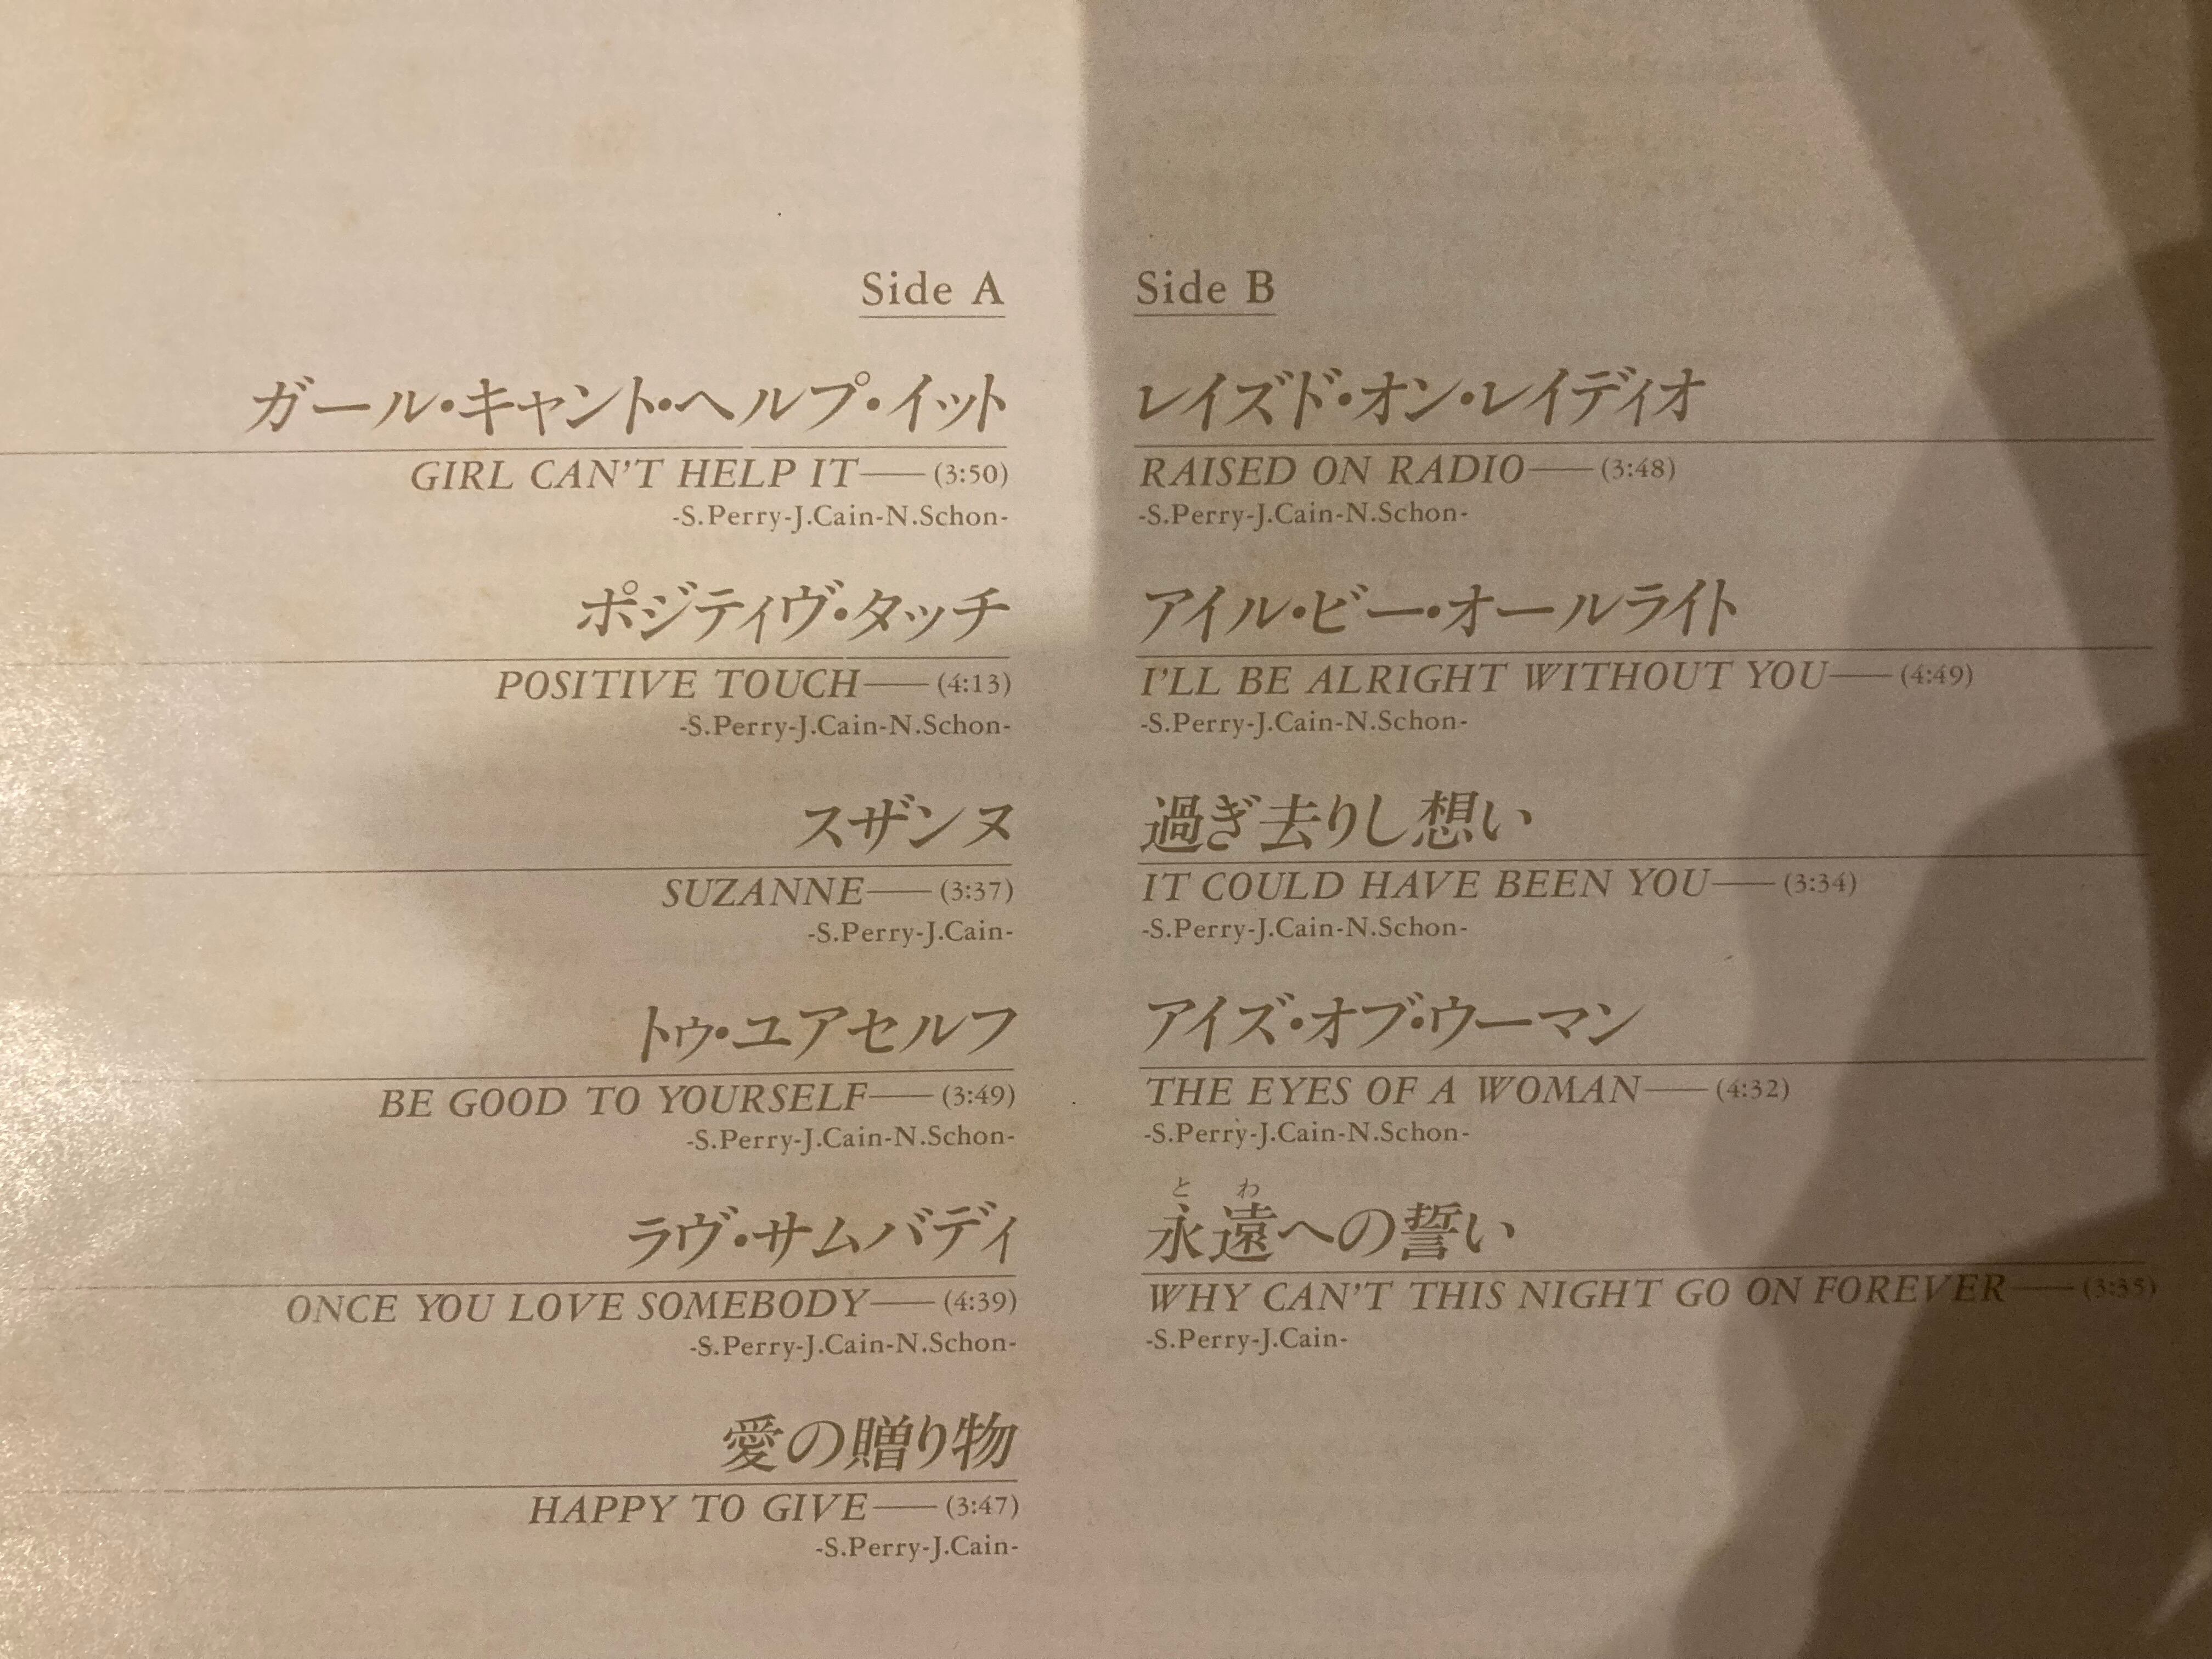 Side A
ガール・キャント・ヘルプ・イット
GIRL CAN'T HELP IT——(3:50)
-S.Perry-J.Cain-N.Schon-
ポジティヴ・タッチ
POSITIVE TOUCH——(4:13)
-S.Perry-J.Cain-N.Schon-
スザンヌ
SUZANNE——(3:37)
-S.Perry-J.Cain-
トゥ・ユアセルフ
BE GOOD TO YOURSELF——(3:49)
-S.Perry-J.Cain-N.Schon-
ラヴ・サムバディ
ONCE YOU LOVE SOMEBODY——(4:39)
-S.Perry-J.Cain-N.Schon-
愛の贈り物
HAPPY TO GIVE——(3:47)
-S.Perry-J.Cain-
Side B
レイズド・オン・レイディオ
RAISED ON RADIO——(3:48)
-S.Perry-J.Cain-N.Schon-
アイル・ビー・オールライト
I'LL BE ALRIGHT WITHOUT YOU——(4:49)
-S.Perry-J.Cain-N.Schon-
過ぎ去りし想い
IT COULD HAVE BEEN YOU——(3:34)
-S.Perry-J.Cain-N.Schon-
アイズ・オブ・ウーマン
THE EYES OF A WOMAN——(4:32)
-S.Perry-J.Cain-N.Schon-
とわ
永遠への誓い
WHY CAN'T THIS NIGHT GO ON FOREVER——(3:35)
-S.Perry-J.Cain-